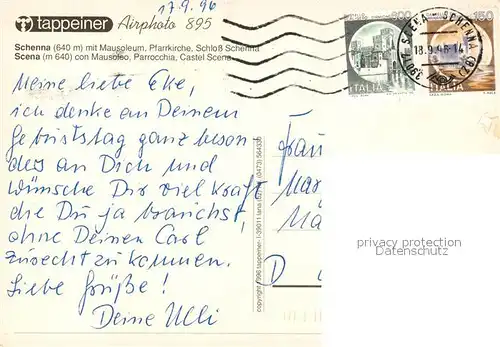 17.9.96
tappeiner Airphoto 895
Schenna (640 m) mit Mausoleum, Pfarrkirche, Schloß Schenna
Scena (m 640) con Mausoleo, Parrocchia, Castel Scena
Meine liebe Eke,
ich denke an Deinem
Geburtstag ganz beson-
ders an Dich und
wünsche Dir viel Kraft
die Du ja brauchst,
ohne Deinen Carl
zurecht zu kommen.
Liebe Grüße!
Deine Ulli
copyright 1996 tappeiner · I-39011 lana (0473) 564330
ITALIA 600
ITALIA 150
SCENA SCHENNA (BZ)
18.9.96-14
39017
Frau
Mar
D
privacy protection
Datenschutz